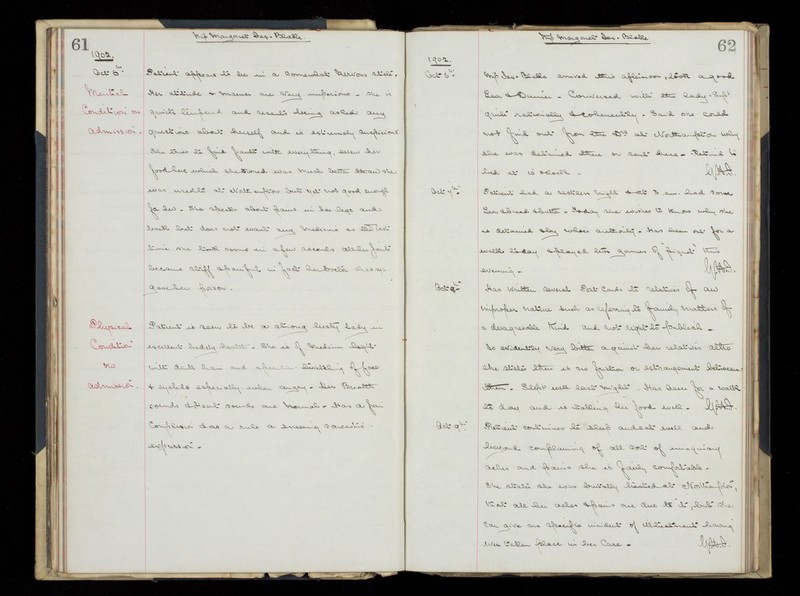 61
Miss Margaret Jex-Blake.
1902.
Oct 6th
Mental
Condition on
admission.
Patient appears to be in a somewhat nervous state.
Her attitude & manner are very imperious - she is
quick tempered and resents being asked any
questions about herself and is extremely suspicious
She tries to find fault with everything, even her
food here which she owned was much better than she
was used to at Northampton but yet not good enough
for her. She speaks about pains in her legs and
back but does not want any medicine as the last
time she took some in a few seconds all her joints
became stiff & painful, in fact the Doctor always
gave her poison.
Physical
Condition
on
admission.
Patient is seen to be a strong hearty lady in
excellent bodily health. She is of medium height
with dark hair and a peculiar twitching of face
& eyelids especially when angry. Her Breath
sounds & Heart sounds are normal. Has a fair
complexion & as a rule a sneering sarcastic
expression -
62
Miss Margaret Jex-Blake
1902.
Oct 6th
Miss Jex-Blake arrived this afternoon, took a good
Tea & Dinner - Conversed with the Lady-Supt
quite rationally & coherently - Said she could
not find out from the Drs at Northampton why
she was detained there or sent here - Retired to
bed at 10 o'clock -
Oct 7th
Patient had a restless night & at 3 a.m. had some
Tea & bread & butter - Today she wishes to know why she
is detained & by whose authority. Has been out for a
walk today & played two games of "piquet" this
evening -
Oct 9th
Has written several Post Cards to relatives of an
improper nature such as referring to family matters of
a disagreeable kind and not right to publish -
Is evidently very bitter against her relatives altho
she states there is no friction or estrangement between
them - Slept well last night - Has been for a walk
to day and is taking her food well -
Oct 9th
Patient continues to sleep and eat well and
beyond complaining of all sorts of imaginary
aches and pains she is fairly comfortable -
She states she was brutally treated at Northampton,
that all her aches & pains are due to it, but she
can give no specific incident of illtreatment having
been taken place in her Case -